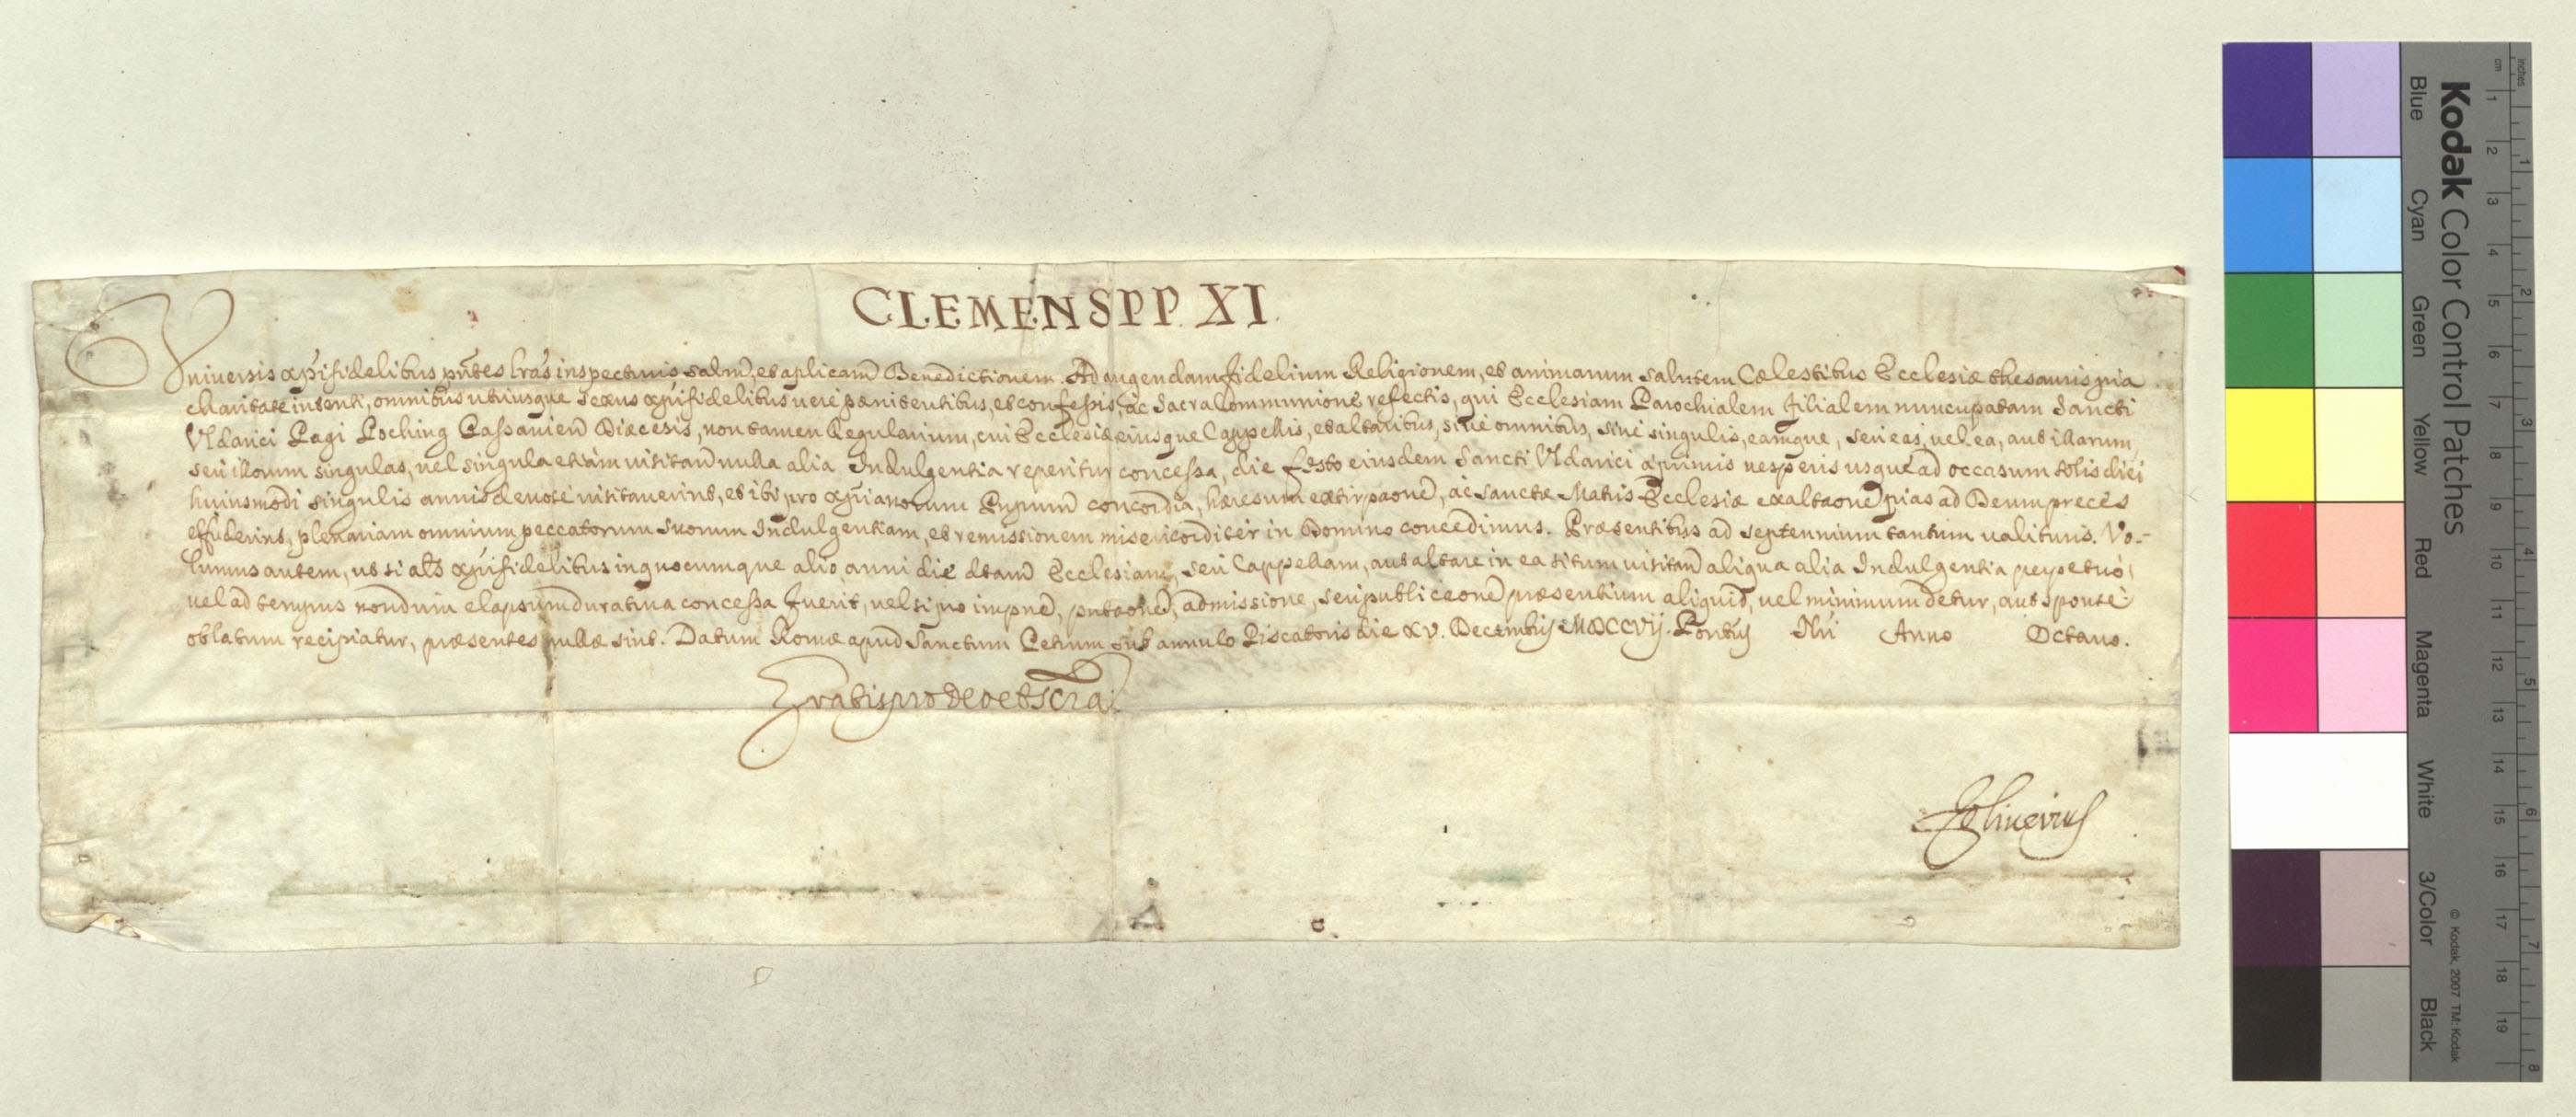 CLEMENS PP. XI.
Universis xpifidelibus pñtes lrãs inspecturis salm̃, et aplicam̃ Benedictionem. Ad augendam fidelium Religionem, et animarum salutem Cælestibus Ecclesiæ thesauris pia
charitate intenti, omnibus utriusque sexus xp̃ifidelibus verè pænitentibus, et confessis, ac Sacra Communione refectis, qui Ecclesiam Parochialem filialem nuncupatam Sancti
Vldarici Pagi Poching Passavieñ Diæcesis, non tamen Regularium, cui Ecclesiæ, eiusque Cappellis, et altaribus, sive omnibus, sive singulis, eamque, seu eas, vel ea, aut illarum,
seu illorum singulas, vel singula etiam visitañ nulla alia Indulgentia reperitur concessa, die festo eiusdem Sancti Vldarici a primis vesperis usque ad occasum solis diei
huiusmodi singulis annis devotè visitaverint, et ibi pro xp̃ianorum Prĩpum̃ concordia, hæresum extirpaoñe, ac Sanctæ Matris Ecclesiæ exaltaoñe pias ad Deum preces
effuderint, plenariam omnium peccatorum suorum Indulgentiam, et remissionem misericorditer in Domino concedimus. Præsentibus ad septennium tantum valituris. Vo-
lumus autem, ut si alỹs xp̃ifidelibus in quocumque alio anni die dtam̃ Ecclesiam, seu Cappellam, aut altare in ea situm visitañ aliqua alia Indulgentia perpetuò,
vel ad tempus nondum elapsum duratura concessa fuerit, vel si pro impñe, pñtaoñe, admissione, seu publicaoñe præsentium aliquid, vel minimum detur, aut sponte
oblatum recipiatur, præsentes nullæ sint. Datum Romæ apud Sanctum Petrum sub annulo Piscatoris die xv. Decembris MDCCVij. Pontũs Nr̃i Anno Octavo.
Gratis pro Deo et Scr̃a
F. Oliverius
Kodak Color Control Patches
Blue Cyan Green Yellow Red Magenta White 3/Color Black
© Kodak, 2007 TM: Kodak
inches 1 2 3 4 5 6 7 8
cm 1 2 3 4 5 6 7 8 9 10 11 12 13 14 15 16 17 18 19